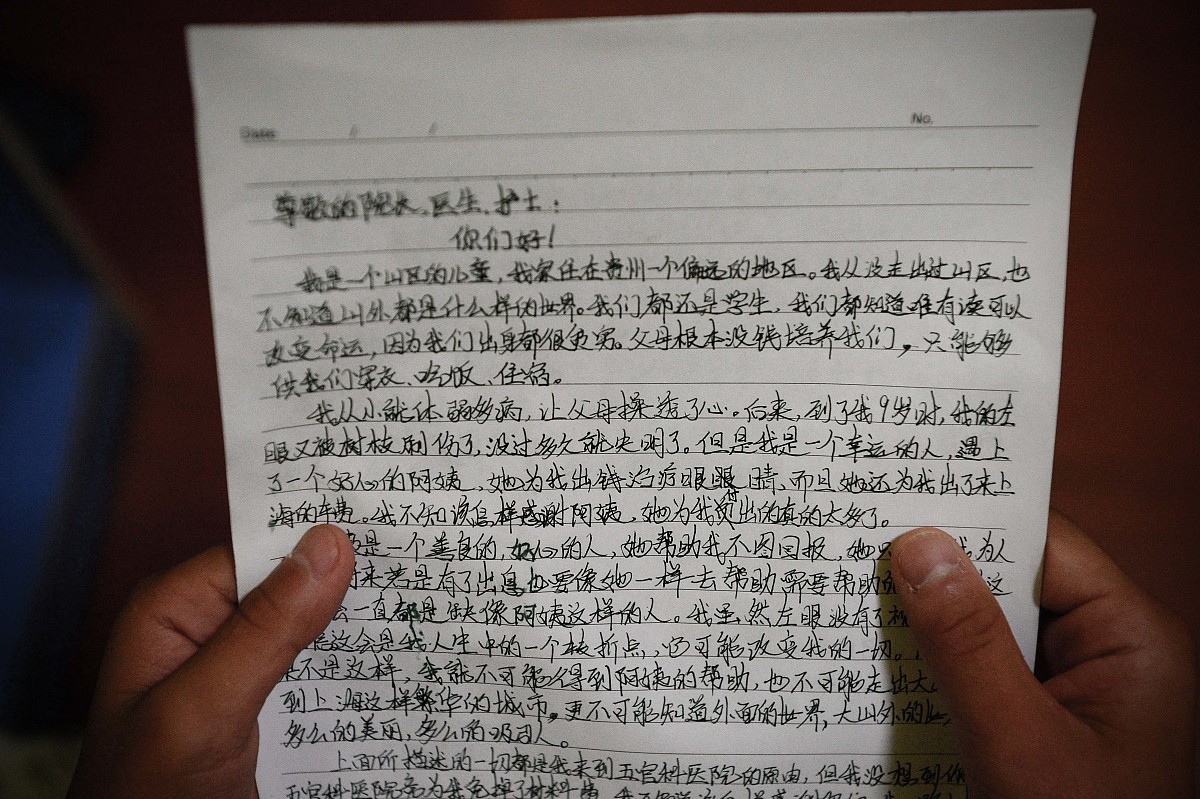 Date / /
No.
尊敬的院长、医生、护士：
你们好！
我是一个山区的儿童，我家住在贵州一个偏远的地区。我从没走出过山区，也
不知道山外都是什么样的世界。我们都还是学生，我们都知道唯有读可以
改变命运，因为我们出身都很贫穷。父母根本没钱培养我们，只能够
供我们穿衣、吃饭、住宿。
我从小就体弱多病，让父母操透了心。后来，到了我9岁时，我的左
眼又被树枝刺伤了，没过多久就失明了。但是我是一个幸运的人，遇上
了一个好心的阿姨，她为我出钱治疗眼睛，而且她还为我出了来上
海的车费。我不知该怎样感谢阿姨，她为我付出的真的太多了。
是一个善良的，好心的人，她帮助我不图回报，她只 我为人
将来若是有了出息也要像她一样去帮助需要帮助 这
么一直都是缺像阿姨这样的人。我虽然左眼没有了
信这会是我人生中的一个转折点，它可能改变我的一切。
果不是这样，我就不可能得到阿姨的帮助，也不可能走出大
到上海这样繁华的城市，更不可能知道外面的世界，大山外的世
多么的美丽，多么的吸引人。
上面所描述的一切都是我来到五官科医院的原由，但我没想到你
五官科医院竟为我免掉了材料费，我不知道该